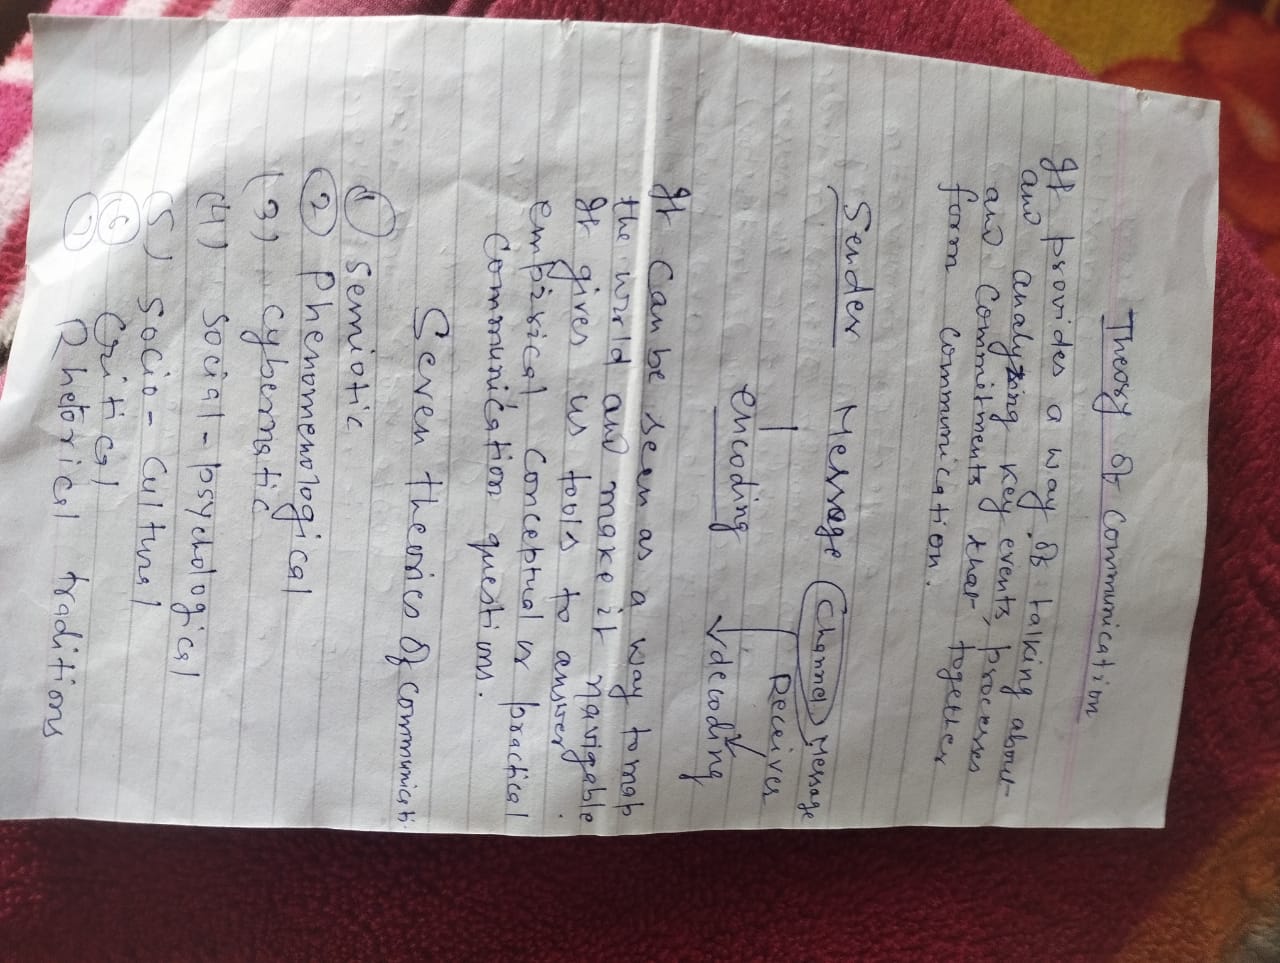 Theory of Communication
It provides a way of talking about
and analyzing key events, processes
and commitments that together
form communication.
Sender Message Channel Message
Receiver
encoding decoding
It can be seen as a way to map
the world and make it navigable
It gives us tools to answer
empirical conceptual or practical
communication questions.
Seven theories of communicati
(1) Semiotic
(2) Phenomenological
(3) cybernatic
(4) social-psychological
(5) socio-cultural
(6) Critical
(7) Rhetorical traditions